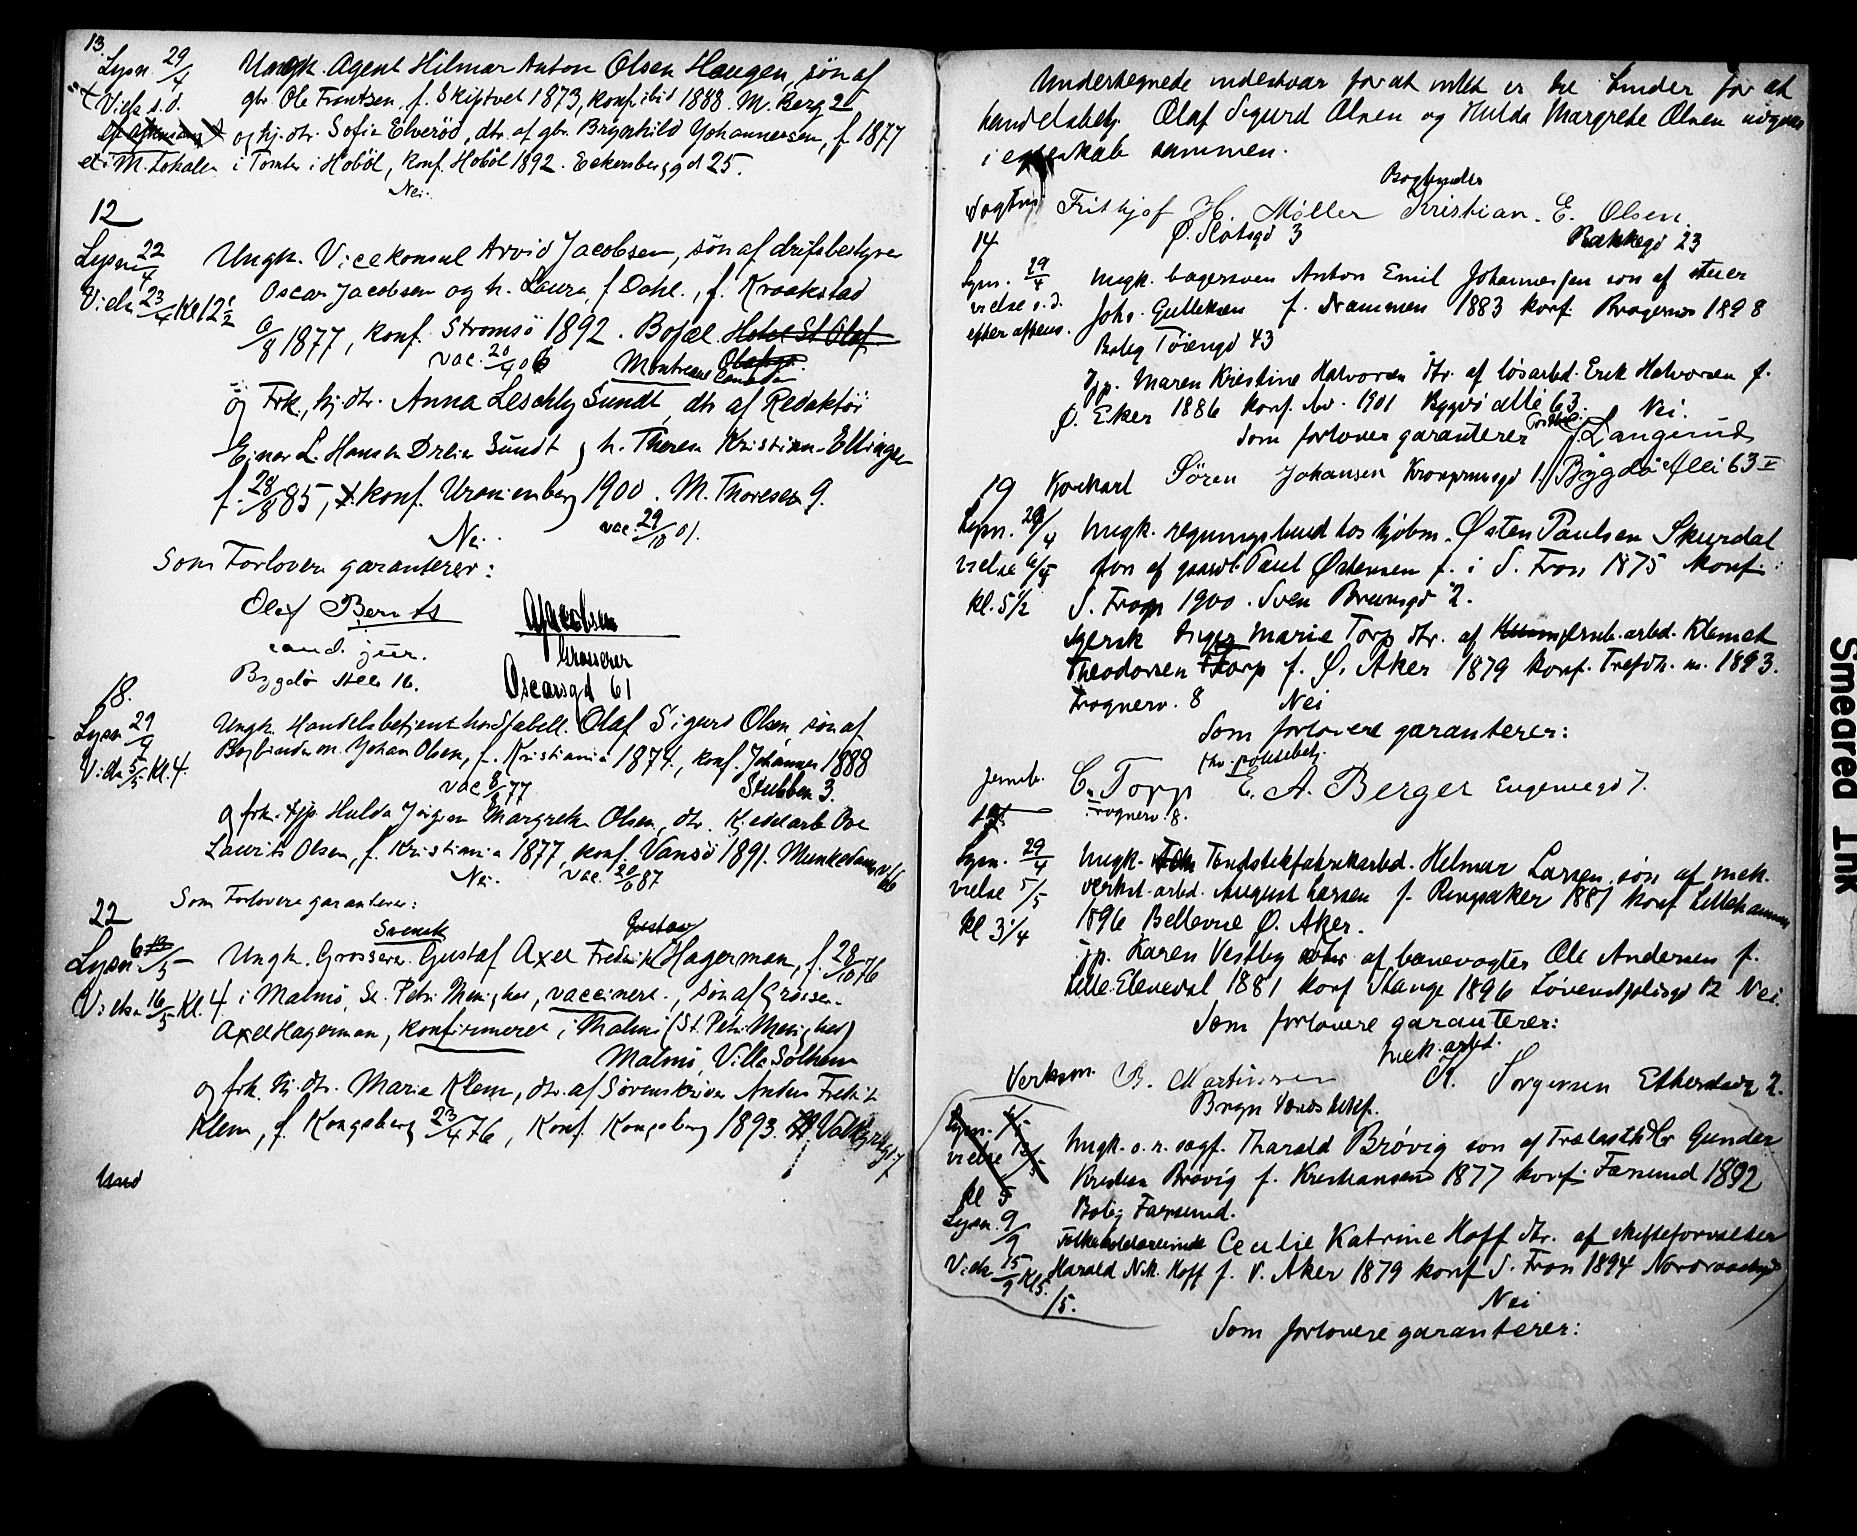 13.
Lysn. 29/4
Vielse s.d.
et i M. Lokalen
Ungk. Agent Hilmar Anton Olsen Haugen, søn af
gbr. Ole Frantsen, f. Skiptvet 1873, konf. ibid 1888. M. Berg 25
og hj. dtr. Sofie Elverød, dtr. af gbr. Brynhild Johannersen, f. 1877
i Tomter i Hobøl, konf. Hobøl 1892. Eckersbergsgd 25.
Nei.
12
Lysn. 22/4
Vielse 23/4 Kl 12 1/2
Ungk. Vicekonsul Arvid Jacobsen, søn af driftsbestyrer
Oscar Jacobsen og h. Laura, f. Dahl., f. Kraakstad
6/8 1877, konf. Strømsø 1892. Bopæl Hotel St Olaf
vac. 20/4 06 Montreal
Canada
og Frk., hj. dtr. Anna Leschly Sundt, dtr. af Redaktør
Einar L. Hansen Dreier Sundt og h. Theresa Kristiane Ellinger
f. 28/8 85, konf. Uranienborg 1900. M. Thoresens g.
Nei. vac. 29/10 01.
Som Forlovere garanterer:
Olaf Bernts
cand. jur.
Bygdø Alle 16.
A Jacobsen
Grosserer
Oscarsgd 61
18.
Lysn 29/4
Vielse 5/5 Kl. 4.
Ungk. Handelsbetjent hos Stabell. Olaf Sigurd Olsen, søn af
Bogbinderm. Johan Olsen, f. Kristiania 1874, konf. Johannes 1888
vac 8/9 77 Stubben 3.
og frk. Hulda Jørgine Margrethe Olsen, dtr. Kjedelarb Ove
Laurits Olsen, f. Kristiania 1877, konf. Vansø 1891. Munkedamsv 66
Nei. vac. 20/6 87
Som Forlovere garanterer:
22
Lysn. 6/5
Vielse 16/5 Kl. 4
Svensk Gustav
Ungk. Grosserer Gustaf Axel Fredrik Hagerman, f. 28/10 76
i Malmø, St. Petri Menighed, vaccineret, søn af Grosserer
Axel Hagerman, konfirmeret i Malmø (St. Petri Menighed)
Malmø, Villa Solhem
og frk. hj. dtr. Marie Klem, dtr. af Sorenskriver Anders Fredrik
Klem, f. Kongsberg 23/4 76, Konf. Kongsberg 1893.
Und
Undertegnede indestaar for at intet er til hinder for at
handelsbetj. Olaf Sigurd Olsen og Hulda Margrete Olsen indgaar
i egteskab sammen.
Bogbinder
Frithjof H. Møller Kristian. E. Olsen.
Ø. Slotsgd 3 Bakkegd 23
14
Lysn. 29/4
vielse s.d.
efter aftens.
Ungk. bagersven Anton Emil Johannessen søn af
Johs. Gulleksen f. Drammen 1883 konf. Bragernes 1898
Bolig Tøiengd 43
Pp. Maren Kristine Halvorsen dtr. af løsarbd. Erik Halvorsen f.
Ø. Eker 1886 konf. 1901 Bygdø alle 63. Nei.
Som forlover garanterer J. Langerud
Bygdø Alle 63 II
Søren Johansen Kronprinsgd 1.
19
Lysn. 29/4
vielse 6/5
kl. 5 1/2
Ungk. regningsbud hos kjøbm. Østen Paulsen Skurdal
søn af gaardbr. Paul Østensen f. i S. Fron 1875 konf.
S. Fron 1900. Sven Brunsgd 2.
Syersk Inger Marie Torp dtr. af jernb.arbd. Klemet
Theodorsen Torp f. Ø. Aker 1879 konf. Trefdh. m. 1893.
Frognerv. 8 Nei
Som forlovere garanterer:
fhv. politibetj.
Jernb. C. Torp E. A. Berger Eugeniegd 7.
Frognerv. 8.
Lysn. 29/4
vielse 5/5
kl 3 1/4
Ungk. Tændstikfabrikarbd. Helmar Larsen søn af mek.
verkst.arbd. August Larsen f. Ringsaker 1881 konf Lillehammer
1896 Bellevue Ø. Aker.
Pp. Karen Vestby dtr af banevogter Ole Andersen f.
Lille Elvedal 1881 konf Stange 1896 Løvenskjoldsgd 12 Nei.
Som forlovere garanterer:
mek. arbd.
Verksm. B. Martinsen K. Jørgensen Etterstadg 2.
Bryn
Lysn.
vielse
kl 5
Lysn. 9/9
Vielse 15/9 Kl 5.
15.
Ungk. o.r. sagf. Tharald Brøvig søn af Trælasth. Gunder
Kristian Brøvig f. Kristiansand 1877 konf. Farsund 1892
Bolig Farsund.
Cecilie Katrine Hoff dtr. af skifteforvalter
Harald N.K. Hoff f. V. Aker 1879 konf S. Fron 1894
Nei
Som forlovere garanterer:
Smeared Ink